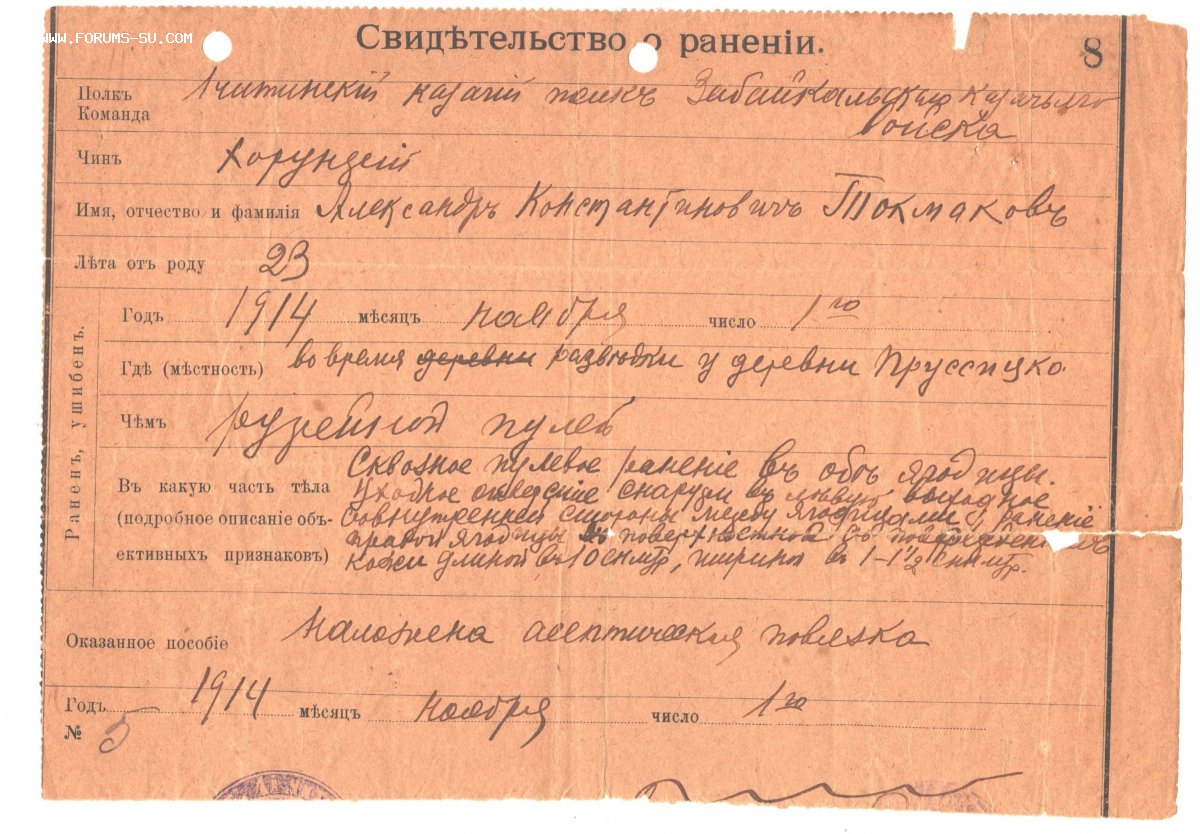 WWW.FORUMS-SU.COM
Свидѣтельство о раненіи.
8
Полкъ
Команда
1 Читинскій казачій полкъ Забайкальскаго казачьяго
войска
Чинъ Хорунжій
Имя, отчество и фамилія Александръ Константиновичъ Токмаковъ
Лѣта отъ роду 23
Раненъ, ушибенъ.
Годъ 1914 мѣсяцъ ноября число 1го
Гдѣ (мѣстность) во время деревни развѣдки у деревни Пруссицко
Чѣмъ ружейной пулей
Въ какую часть тѣла
(подробное описаніе объ-
ективныхъ признаковъ)
Сквозное пулевое раненіе въ обѣ ягодицы.
снаружи въ выходное
стороны между ягодицами и раненіе
правой ягодицы поверхностной съ
кожи длиной въ 10 снтм., шириной въ 1-1½ снтм.
Оказанное пособіе Наложена асептическая повязка
Годъ 1914 мѣсяцъ ноября число 1го
№ 5